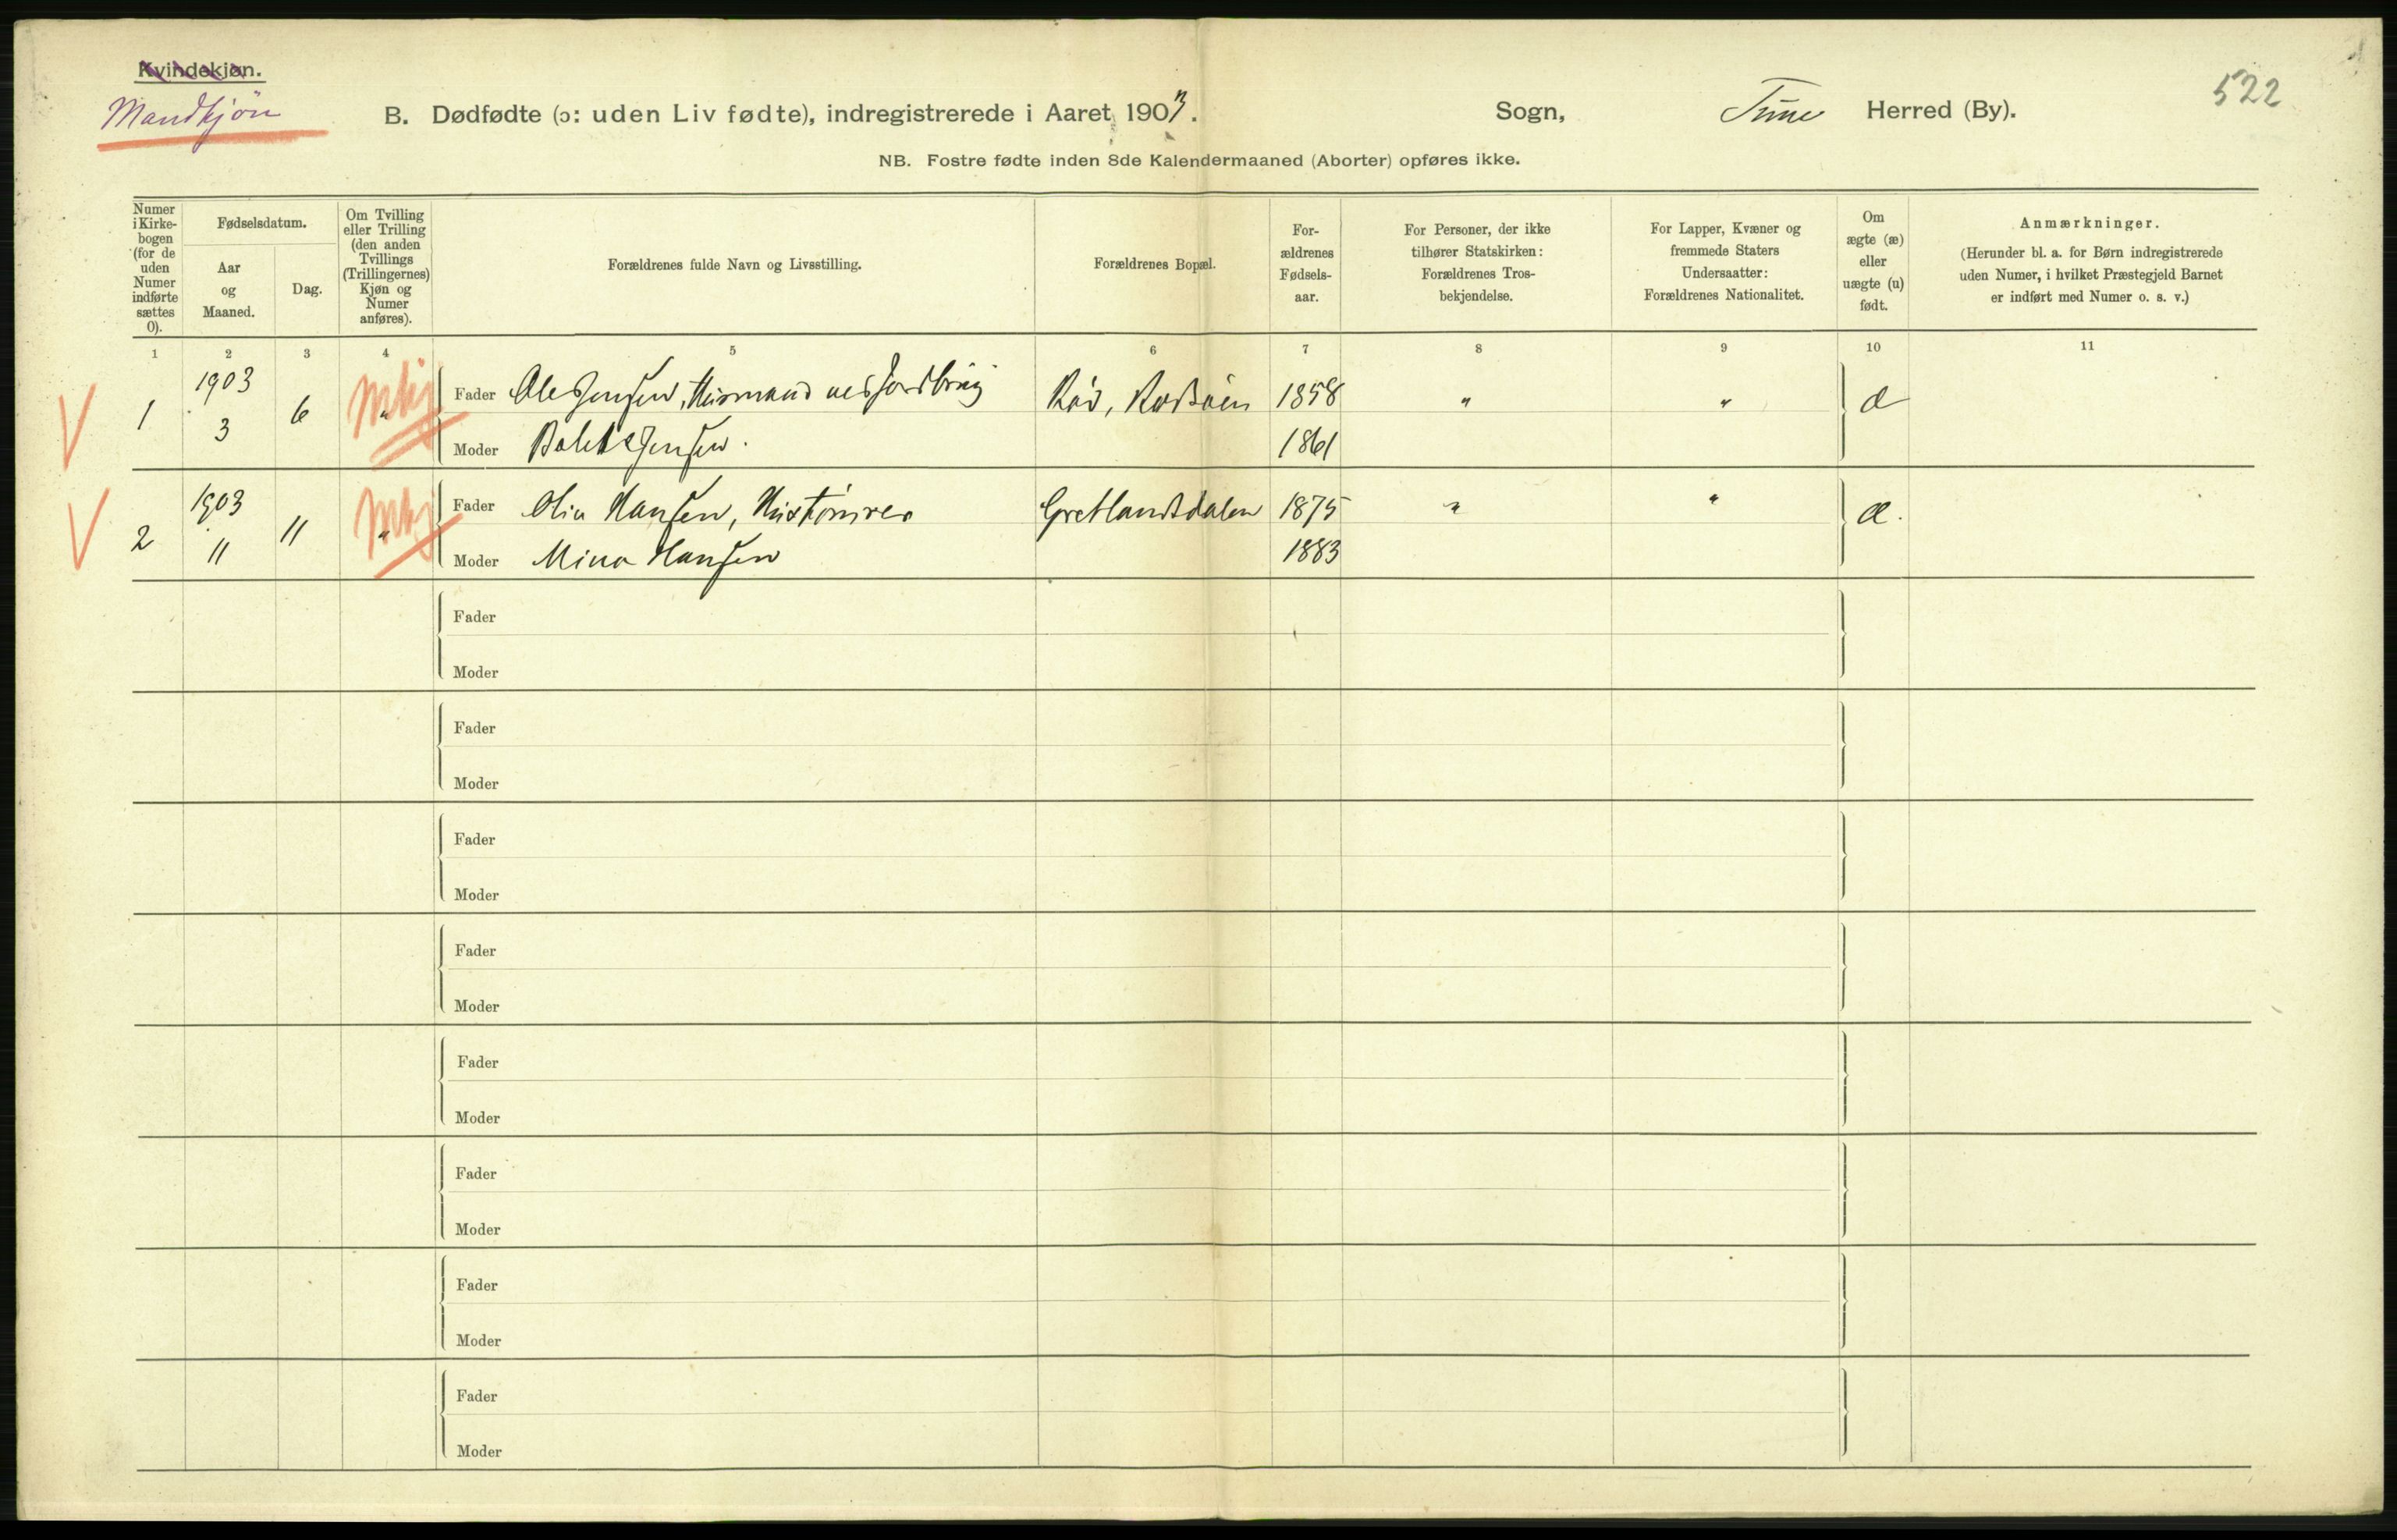 Kvindekjøn.
Mandkjøn
B. Dødfødte (ɔ: uden Liv fødte), indregistrerede i Aaret 1903. Sogn, Tune Herred (By).
522
NB. Fostre fødte inden 8de Kalendermaaned (Aborter) opføres ikke.
Numer i Kirke-bogen (for de uden Numer indførte sættes 0).
Fødselsdatum.
Aar og Maaned.
Dag.
Om Tvilling eller Trilling (den anden Tvillings (Trillingernes) Kjøn og Numer anføres).
Forældrenes fulde Navn og Livsstilling.
Forældrenes Bopæl.
For-ældrenes Fødsels-aar.
For Personer, der ikke tilhører Statskirken: Forældrenes Tros-bekjendelse.
For Lapper, Kvæner og fremmede Staters Undersaatter: Forældrenes Nationalitet.
Om ægte (æ) eller uægte (u) født.
Anmærkninger.
(Herunder bl. a. for Børn indregistrerede uden Numer, i hvilket Præstegjeld Barnet er indført med Numer o. s. v.)
1 2 3 4 5 6 7 8 9 10 11
V 1 1903 3 6 Mkj " Fader Ole Jensen, Husmand med Jordbrug Röd, 1858 " " æ
Moder Jensen. 1861
V 2 1903 11 11 Mkj " Fader Hansen, Gretlandsdalen 1875 " " æ.
Moder Mina Hansen 1883
Fader
Moder
Fader
Moder
Fader
Moder
Fader
Moder
Fader
Moder
Fader
Moder
Fader
Moder
Fader
Moder